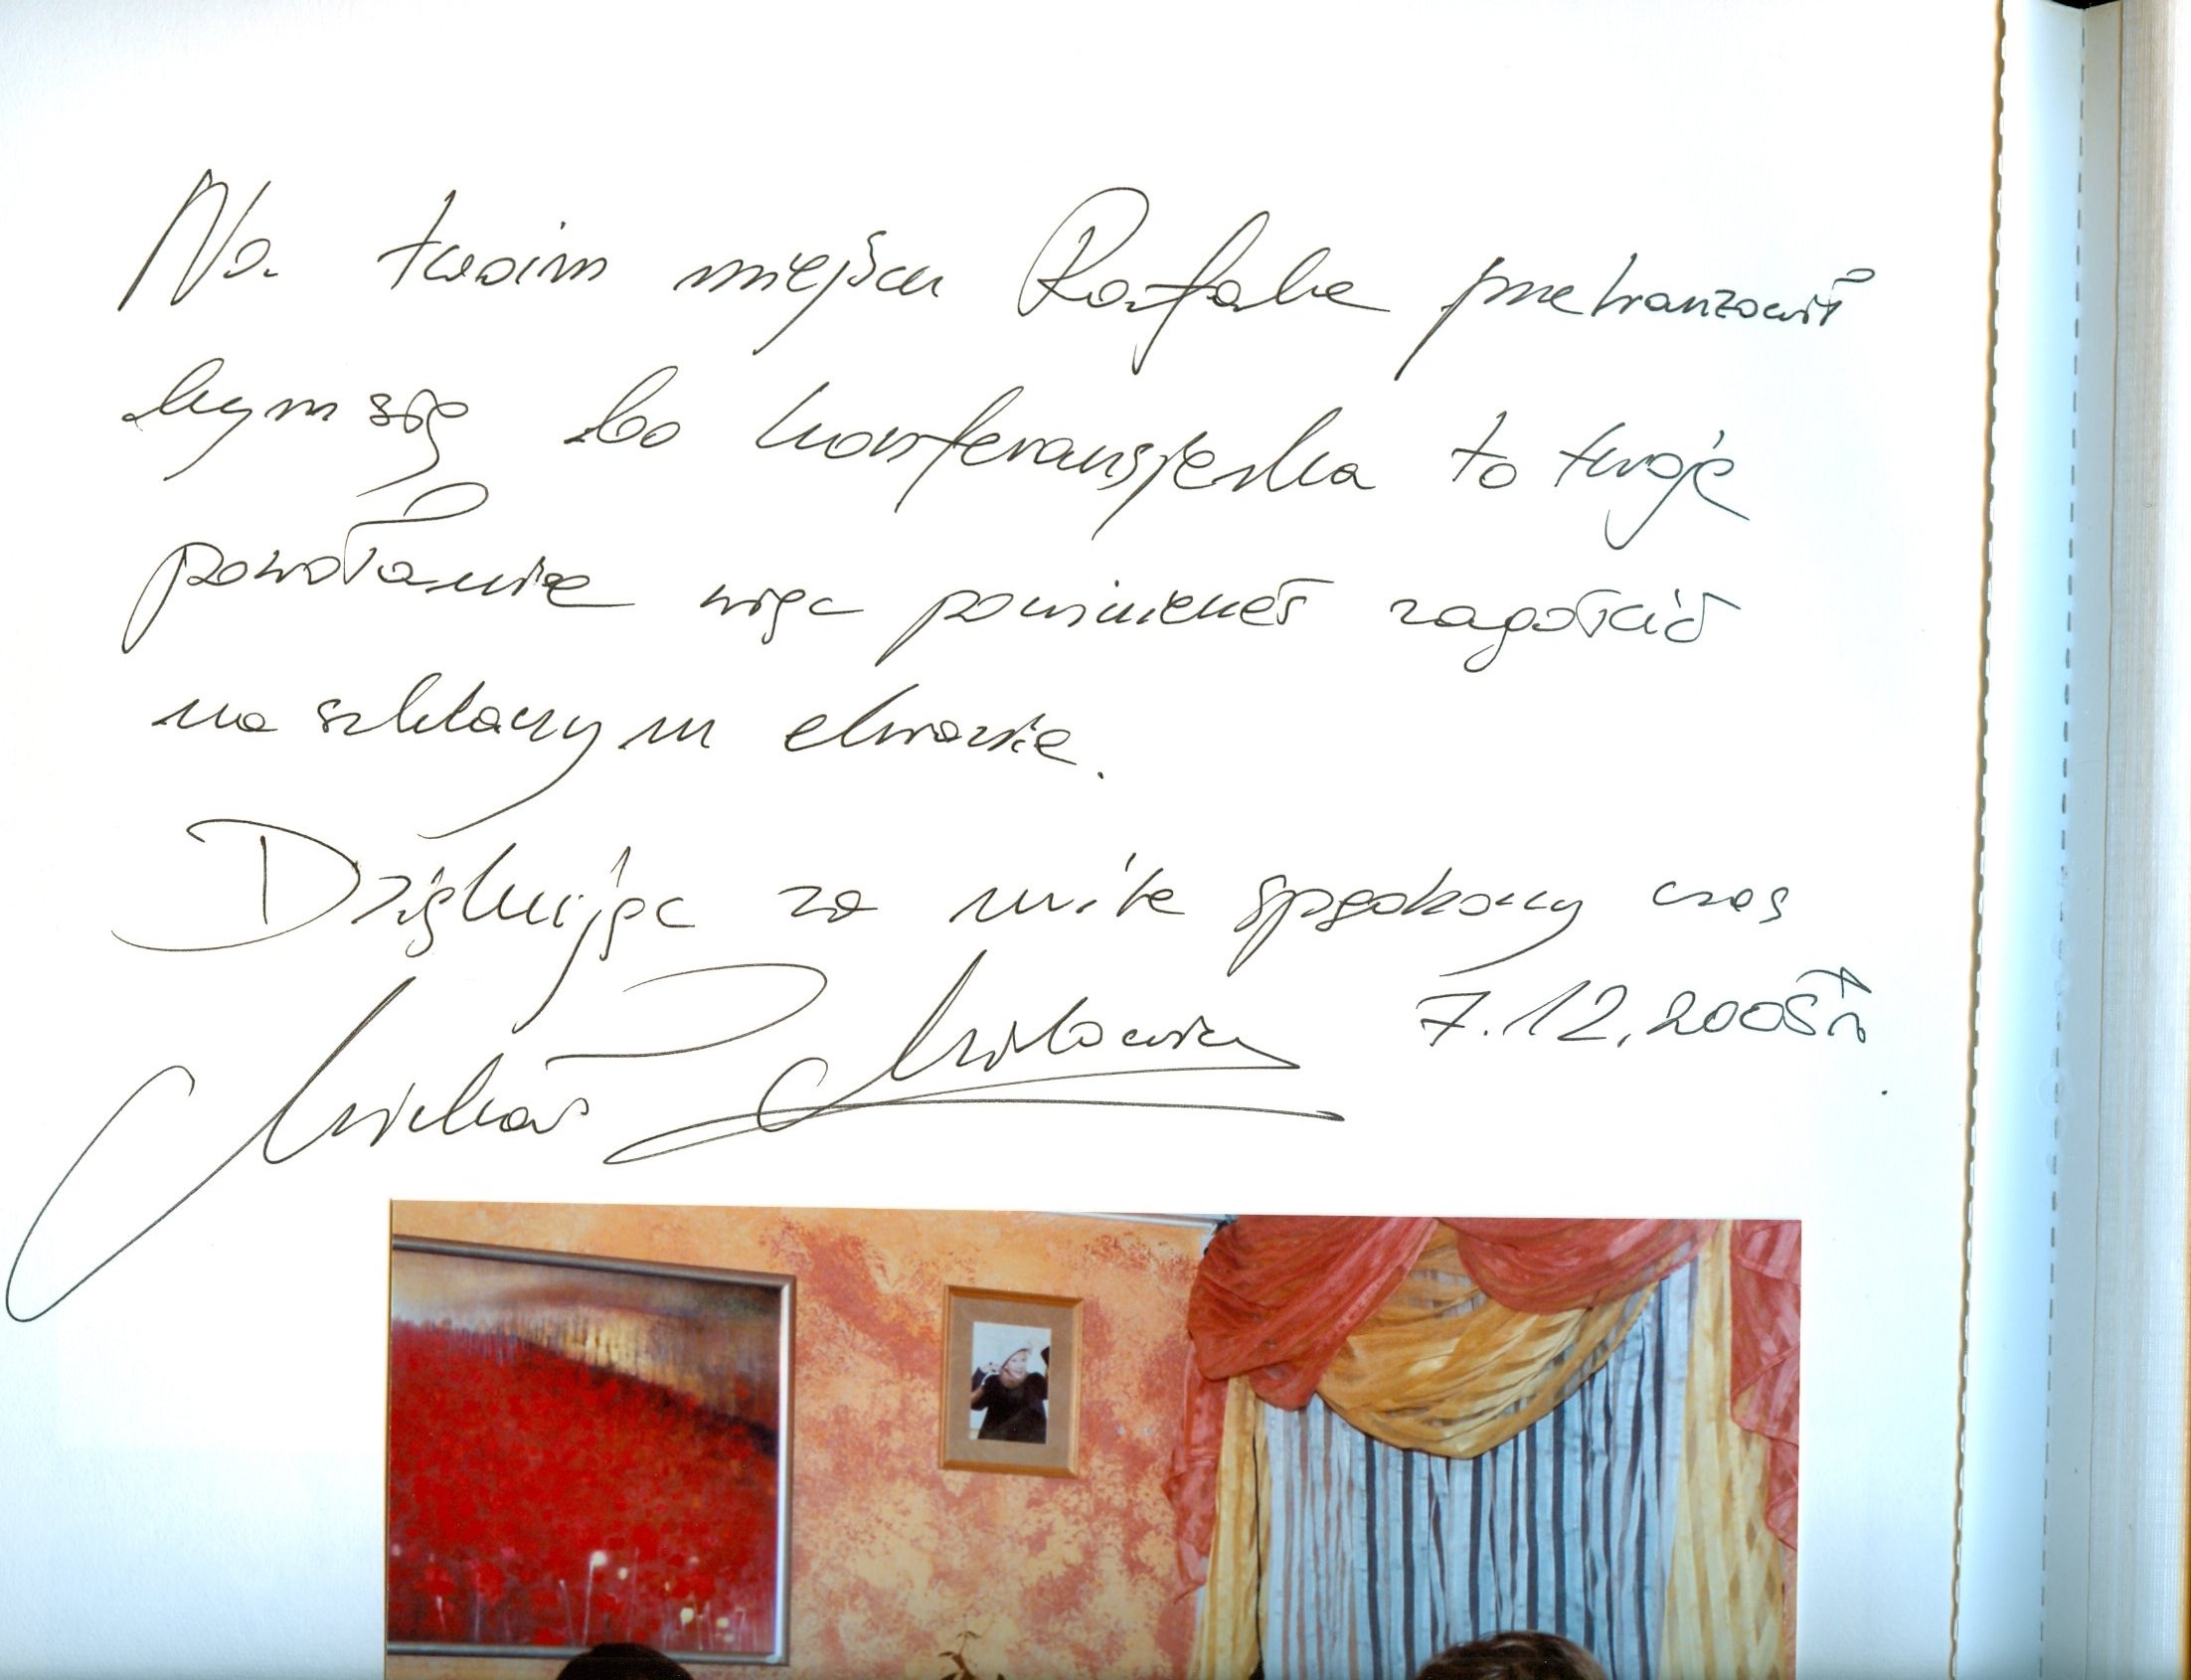 Na twoim miejscu Rafale przebranżowił
bym się bo konferansjerka to twoje
powołanie więc powinieneś zagościć
na szklanym ekranie.
Dziękując za mile spędzony czas
Michał Milowicz 7.12.2005r.